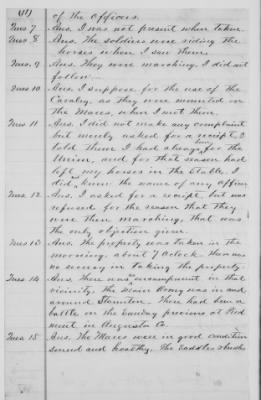 (11)
of the Officers.
Ques 7 Ans. I was not present when taken.
Ques 8 Ans. The soldiers were riding the
horses when I saw them.
Ques 9 Ans. They were marching, I did not
follow.
Ques 10 Ans. I suppose for the use of the
Cavalry, as they were mounted on
the Mares, when I met them.
Ques 11 Ans. I did not make any complaint
but merely asked for a receipt, I
told them I had always been for the
Union, and for that reason had
left my horses in the Stable. I
did not know the name of any officer
Ques 12 Ans. I asked for a receipt, but was
refused for the reason that they
were then marching, that was
the only objection given.
Ques 13 Ans. The property was taken in the
morning, about 7 Oclock. there was
no secrecy in taking the property.
Ques 14 Ans. There was encampment in that
vicinity, the Main Army was in and
around Staunton. There had been a
battle on the Sunday previous at Pied
mont in Augusta Co.
Ques 15 Ans. The Mares were in good condition
sound and healthy. The Saddles &